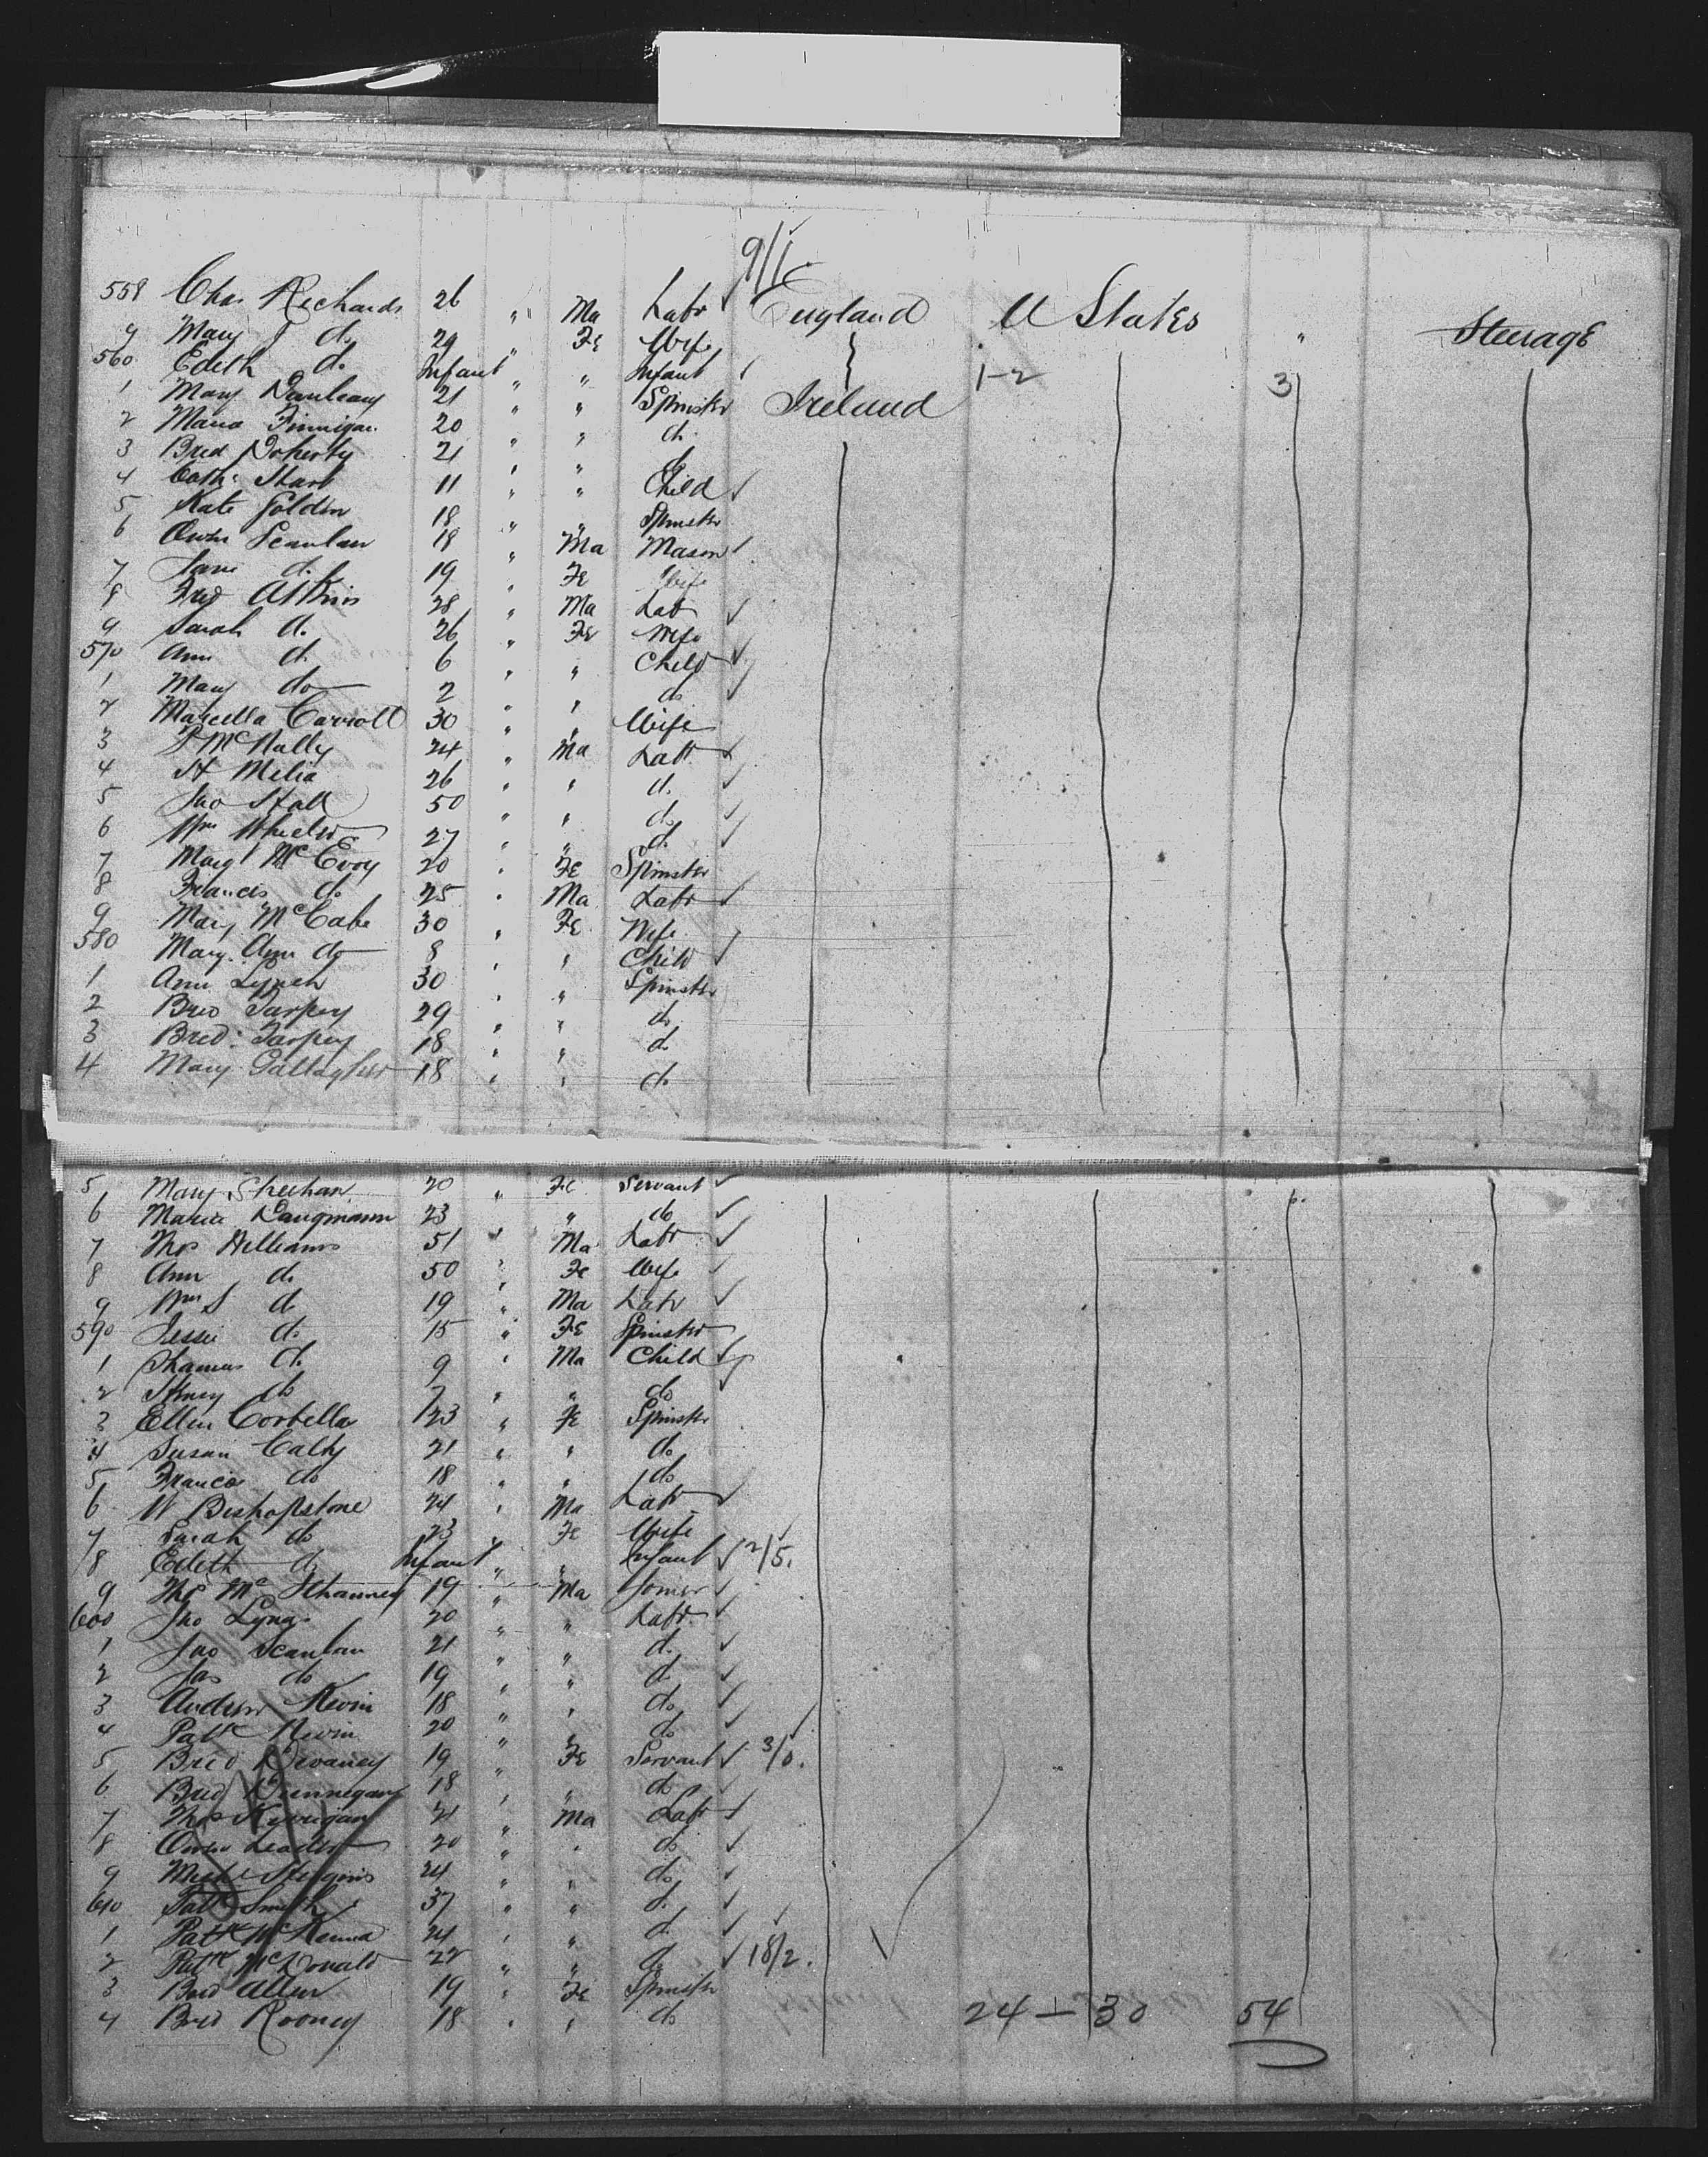 9/1
558 Chas Richards 26 " Ma Labr England U States " Steerage
9 Mary J do 29 " Fe Wife
560 Edith do Infant " " Infant ✓ 1-2 3
1 Mary 21 " " Spinster Ireland
2 Maria Finnigan 20 " " do
3 Bred Doherty 21 " " do
4 Cath: 11 " " Child ✓
5 Kate Golden 18 " " Spinster
6 Owen Scanlan 18 " Ma Mason ✓
7 Jane do 19 " Fe Wife
8 Fred Atkins 28 " Ma Lab ✓
9 Sarah do 26 " Fe Wife
570 Ann do 6 " " Child ✓
1 Mary do 2 " " do ✓
2 Marcella Carroll 30 " " Wife
3 P McNally 24 " Ma Labr ✓
4 H Melia 26 " " do ✓
5 Jno Hall 50 " " do ✓
6 Wm Wheeler 27 " " do ✓
7 Margt McEvoy 20 " Fe Spinster
8 Francis do 25 " Ma Labr ✓
9 Mary McCabe 30 " Fe Wife
580 Mary Ann do 8 " " Child ✓
1 Ann Lynch 30 " " Spinster
2 Bred Tarpey 29 " " do
3 Bred: Tarpey 18 " " do
4 Mary Gallagher 18 " " do
5 Mary Sheehan 20 " Fe Servant ✓
6 Maria Langmann 23 " do ✓
7 Thos Williams 51 " Ma Labr ✓
8 Ann do 50 " Fe Wife ✓
9 Wm S do 19 " Ma Labr ✓
590 Jessie do 15 " Fe Spinster
1 Thomas do 9 " Ma Child ✓
2 Henry do 7 " " do
3 Ellen Corbella 23 " Fe Spinster
4 Susan Calty 21 " " do
5 Francis do 18 " " do
6 W Bishopstone 24 " Ma Labr ✓
7 Sarah do 23 " Fe Wife
8 Edith do Infant " " Infant ✓ 2/5.
9 Thos Mc 19 " Ma Joiner ✓
600 Jno Lyng 20 " " Labr ✓
1 Jno Scanlan 21 " " do ✓
2 Jas do 19 " " do ✓
3 Andrew Nevin 18 " " do ✓
4 Patk Nevin 20 " " do ✓
5 Bred Devaney 19 " Fe Servant ✓ 3/0.
6 Bred 18 " " do ✓
7 Thos Kerrigan 21 " Ma Labr ✓
8 Owen 20 " " do ✓
9 24 " " do ✓
610 Patk Smith 37 " " do ✓
1 Patk McKenna 24 " " do ✓
2 Patk McDonald 22 " " do ✓ 18/2.
3 Bred Allen 19 " Fe Spinster
4 Bred Rooney 18 " " do 24 - 30 54